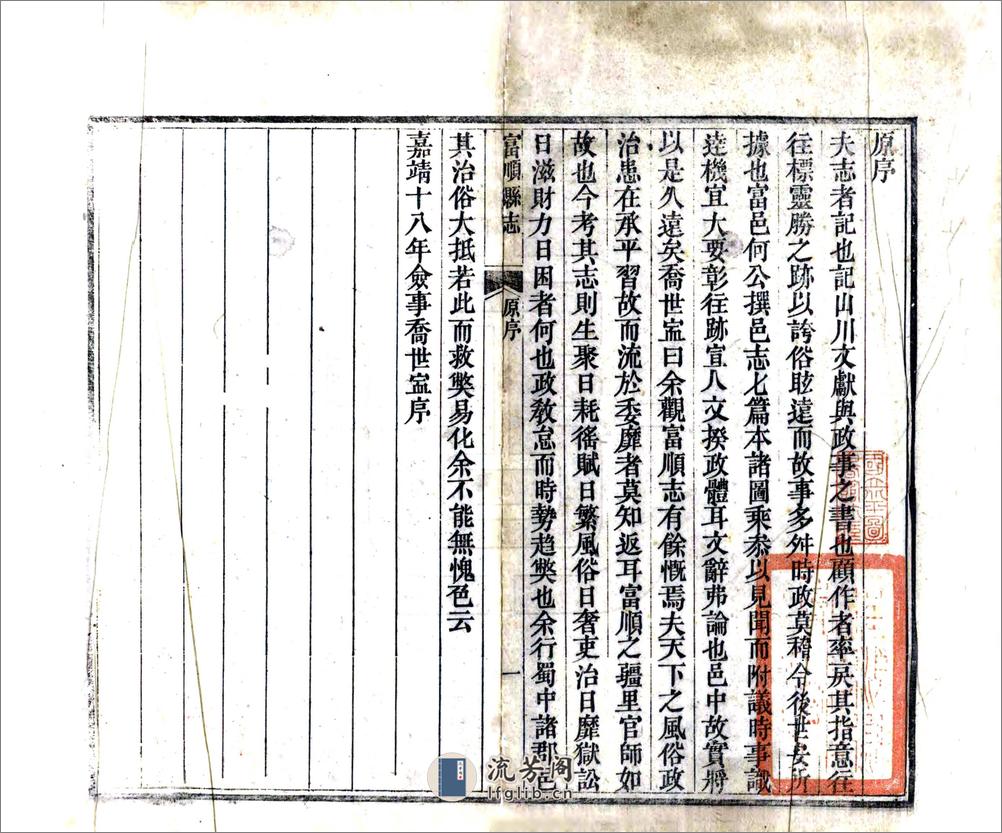 原序
夫志者記也記山川文獻與政事之書也顧作者率戾其指意往
往標靈勝之跡以誇俗眩遠而故事多舛時政莫稽令後世安所
據也富邑何公撰邑志七篇本諸圖乘叅以見聞而附議時事識
達機宜大要彰往跡宣人文揆政體耳文辭弗論也邑中故實將
以是久遠矣喬世寍曰余觀富順志有餘慨焉夫天下之風俗政
治患在承平習故而流於委靡者莫知返耳富順之疆里官師如
故也今考其志則生聚日耗徭賦日繁風俗日奢吏治日靡獄訟
日滋財力日困者何也政敎怠而時勢趋獘也余行蜀中諸郡邑
富順縣志
原序
一
其治俗大抵若此而救獘易化余不能無愧色云
嘉靖十八年僉事喬世寍序
流芳阁
lfglib.cn